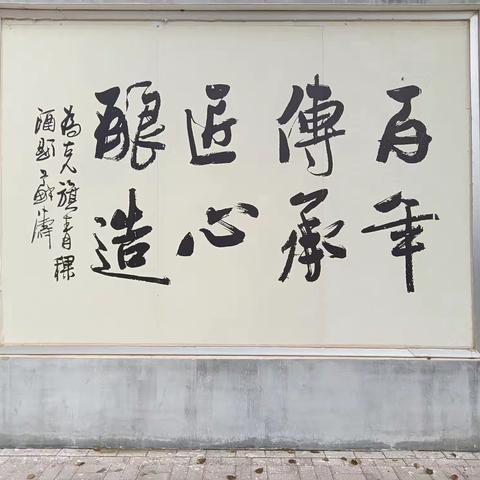 百年
傳承
匠心
釀造
為克旗青稞
酒題 蘇濤